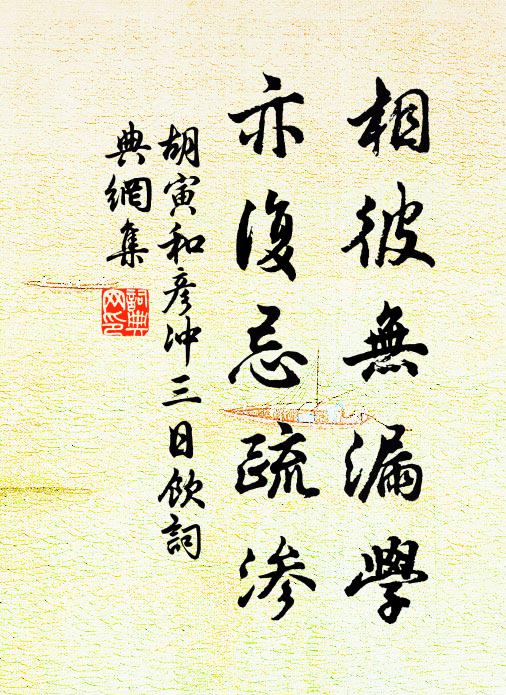 相彼無漏學
亦復忌疏滲
胡寅和彥沖三日飲詞
典網集
詞典
网印